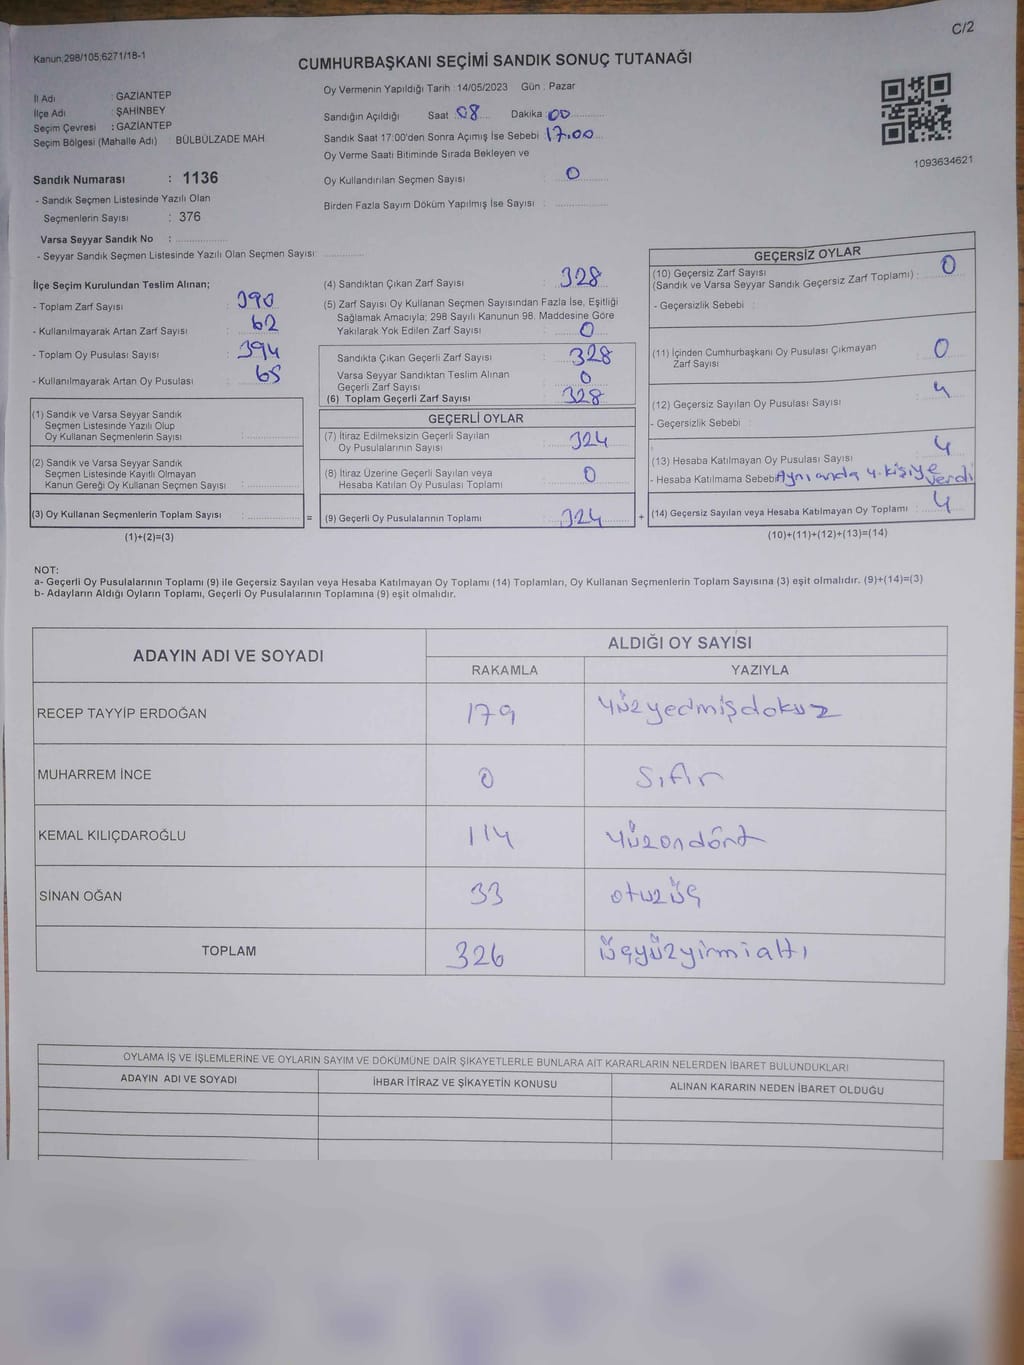 C/2
Kanun;298/105;6271/18-1
CUMHURBAŞKANI SEÇİMİ SANDIK SONUÇ TUTANAĞI
İl Adı : GAZİANTEP
İlçe Adı : ŞAHİNBEY
Seçim Çevresi : GAZİANTEP
Seçim Bölgesi (Mahalle Adı) : BÜLBÜLZADE MAH.
Sandık Numarası : 1136
- Sandık Seçmen Listesinde Yazılı Olan
Seçmenlerin Sayısı : 376
Varsa Seyyar Sandık No : ....................
- Seyyar Sandık Seçmen Listesinde Yazılı Olan Seçmen Sayısı: ...............
Oy Vermenin Yapıldığı Tarih : 14/05/2023 Gün : Pazar
Sandığın Açıldığı Saat : 08 Dakika : 00
Sandık Saat 17:00'den Sonra Açımış İse Sebebi : 17.00
Oy Verme Saati Bitiminde Sırada Bekleyen ve
Oy Kullandırılan Seçmen Sayısı : 0
Birden Fazla Sayım Döküm Yapılmış İse Sayısı : ...............
1093634621
İlçe Seçim Kurulundan Teslim Alınan;
- Toplam Zarf Sayısı : 390
- Kullanılmayarak Artan Zarf Sayısı : 62
- Toplam Oy Pusulası Sayısı : 394
- Kullanılmayarak Artan Oy Pusulası : 65
(1) Sandık ve Varsa Seyyar Sandık
Seçmen Listesinde Yazılı Olup
Oy Kullanan Seçmenlerin Sayısı : ...............
(2) Sandık ve Varsa Seyyar Sandık
Seçmen Listesinde Kayıtlı Olmayan
Kanun Gereği Oy Kullanan Seçmen Sayısı : ...............
(3) Oy Kullanan Seçmenlerin Toplam Sayısı : ............... =
(1)+(2)=(3)
(4) Sandıktan Çıkan Zarf Sayısı : 328
(5) Zarf Sayısı Oy Kullanan Seçmen Sayısından Fazla İse, Eşitliği
Sağlamak Amacıyla; 298 Sayılı Kanunun 98. Maddesine Göre
Yakılarak Yok Edilen Zarf Sayısı : 0
Sandıkta Çıkan Geçerli Zarf Sayısı : 328
Varsa Seyyar Sandıktan Teslim Alınan
Geçerli Zarf Sayısı : 0
(6) Toplam Geçerli Zarf Sayısı : 328
GEÇERLİ OYLAR
(7) İtiraz Edilmeksizin Geçerli Sayılan
Oy Pusulalarının Sayısı : 324
(8) İtiraz Üzerine Geçerli Sayılan veya
Hesaba Katılan Oy Pusulası Toplamı : 0
(9) Geçerli Oy Pusulalarının Toplamı : 324 +
GEÇERSİZ OYLAR
(10) Geçersiz Zarf Sayısı
(Sandık ve Varsa Seyyar Sandık Geçersiz Zarf Toplamı) : 0
- Geçersizlik Sebebi :
(11) İçinden Cumhurbaşkanı Oy Pusulası Çıkmayan
Zarf Sayısı : 0
(12) Geçersiz Sayılan Oy Pusulası Sayısı : 4
- Geçersizlik Sebebi :
(13) Hesaba Katılmayan Oy Pusulası Sayısı : 4
- Hesaba Katılmama Sebebi: Aynı anda 4. kişiye verdi
(14) Geçersiz Sayılan veya Hesaba Katılmayan Oy Toplamı : 4
(10)+(11)+(12)+(13)=(14)
NOT:
a- Geçerli Oy Pusulalarının Toplamı (9) ile Geçersiz Sayılan veya Hesaba Katılmayan Oy Toplamı (14) Toplamları, Oy Kullanan Seçmenlerin Toplam Sayısına (3) eşit olmalıdır. (9)+(14)=(3)
b- Adayların Aldığı Oyların Toplamı, Geçerli Oy Pusulalarının Toplamına (9) eşit olmalıdır.
ADAYIN ADI VE SOYADI ALDIĞI OY SAYISI
RAKAMLA YAZIYLA
RECEP TAYYİP ERDOĞAN 179 Yüzyedmişdokuz
MUHARREM İNCE 0 Sıfır
KEMAL KILIÇDAROĞLU 114 Yüzondört
SİNAN OĞAN 33 otuzüç
TOPLAM 326 üçyüzyirmialtı
OYLAMA İŞ VE İŞLEMLERİNE VE OYLARIN SAYIM VE DÖKÜMÜNE DAİR ŞİKAYETLERLE BUNLARA AİT KARARLARIN NELERDEN İBARET BULUNDUKLARI
ADAYIN ADI VE SOYADI İHBAR İTİRAZ VE ŞİKAYETİN KONUSU ALINAN KARARIN NEDEN İBARET OLDUĞU